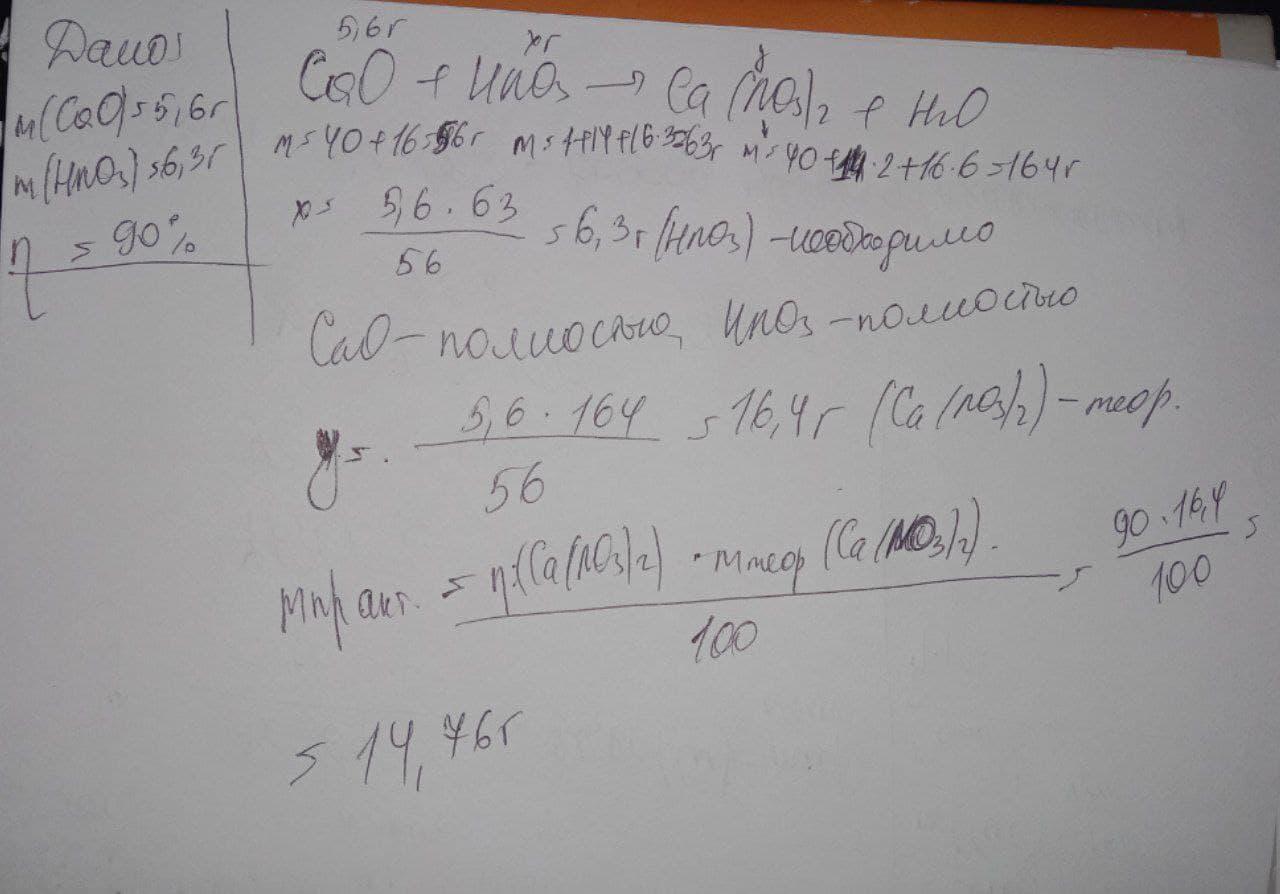 Дано:
m(CaO)=5,6г
m(HNO3)=6,3г
η = 90%
5,6г xг y
CaO + HNO3 → Ca(NO3)2 + H2O
m=40+16=56г m=1+14+16·3=63г M=40+14·2+16·6=164г
x= 5,6·63 / 56 =6,3г(HNO3)-необходимо
CaO-полностью, HNO3-полностью
y=. 5,6·164 / 56 =16,4г (Ca(NO3)2)-теор.
mпракт. = η(Ca(NO3)2)·mтеор(Ca(NO3)2). / 100 = 90·16,4 / 100 =
= 14,76г